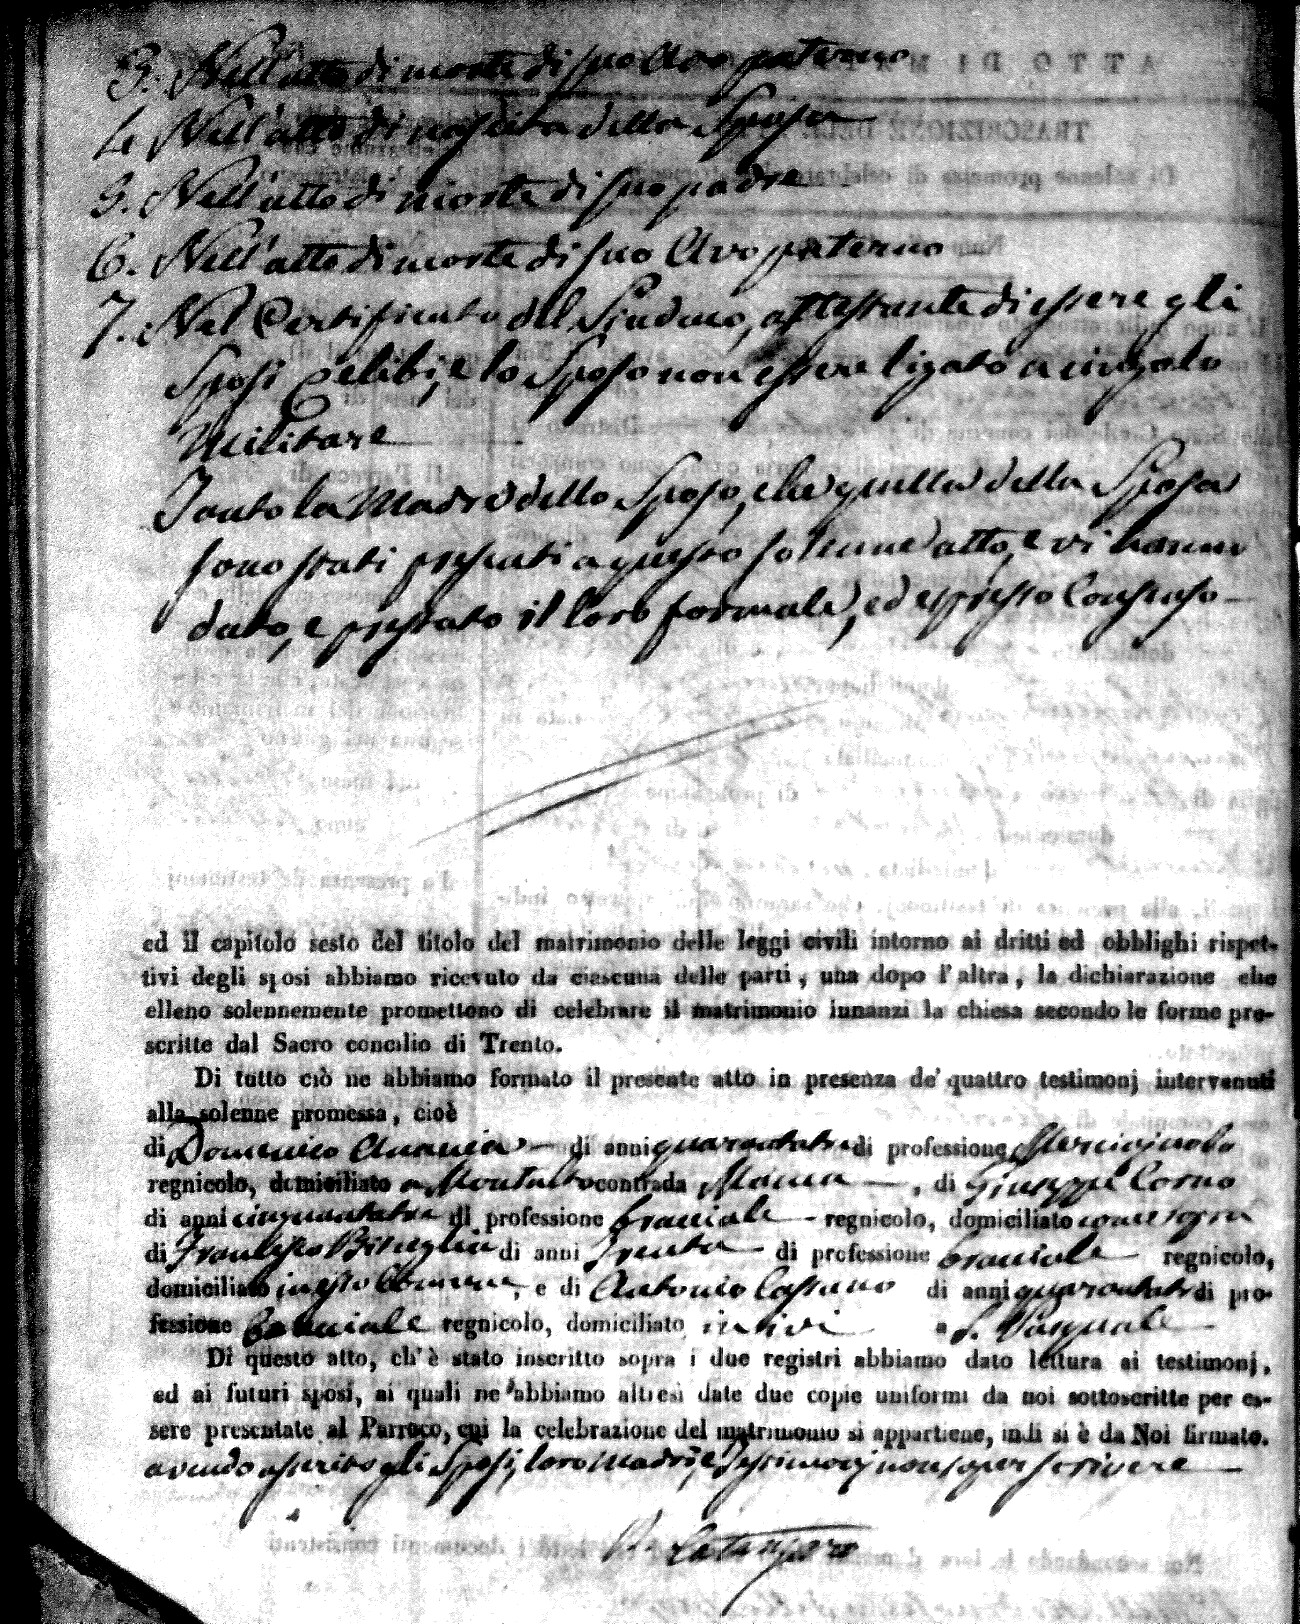 3. Nell'atto di morte di suo Avo paterno
4. Nell'atto di nascita della Sposa
5. Nell'atto di morte di suo padre
6. Nell'atto di morte di suo Avo paterno
7. Nel Certificato del Sindaco, attestante di essere gli
Sposi Celibi, e lo Sposo non essere ligato a cingolo
Militare
Tanto la Madre dello Sposo, che quella della Sposa
sono stati presenti a questo solenne atto, e vi hanno
dato, e prestato il loro formale, ed espresso Consenso
ed il capitolo sesto del titolo del matrimonio delle leggi civili intorno ai dritti ed obblighi rispet-
tivi degli sposi abbiamo ricevuto da ciascuna delle parti, una dopo l'altra, la dichiarazione che
elleno solennemente promettono di celebrare il matrimonio innanzi la chiesa secondo le forme pre-
scritte dal Sacro concilio di Trento.
Di tutto ciò ne abbiamo formato il presente atto in presenza de' quattro testimonj intervenuti
alla solenne promessa, cioè
di Domenico Anania di anni quarantatre di professione
regnicolo, domiciliato a Montalto contrada Manca, di Giuseppe Corno
di anni cinquantatre di professione bracciale regnicolo, domiciliato come sopra
di Francesco Bisciglia di anni Trenta di professione bracciale regnicolo,
domiciliato in esso Comune, e di Antonio Cassano di anni quarantatre di pro-
fessione Bracciale regnicolo, domiciliato in ivi a S. Pasquale
Di questo atto, ch'è stato inscritto sopra i due registri abbiamo dato lettura ai testimonj,
ed ai futuri sposi, ai quali ne abbiamo altresì date due copie uniformi da noi sottoscritte per es-
sere presentate al Parroco, cui la celebrazione del matrimonio si appartiene, indi si è da Noi firmato.
avendo asserito gli Sposi, loro Madri, e Testimonj non saper scrivere